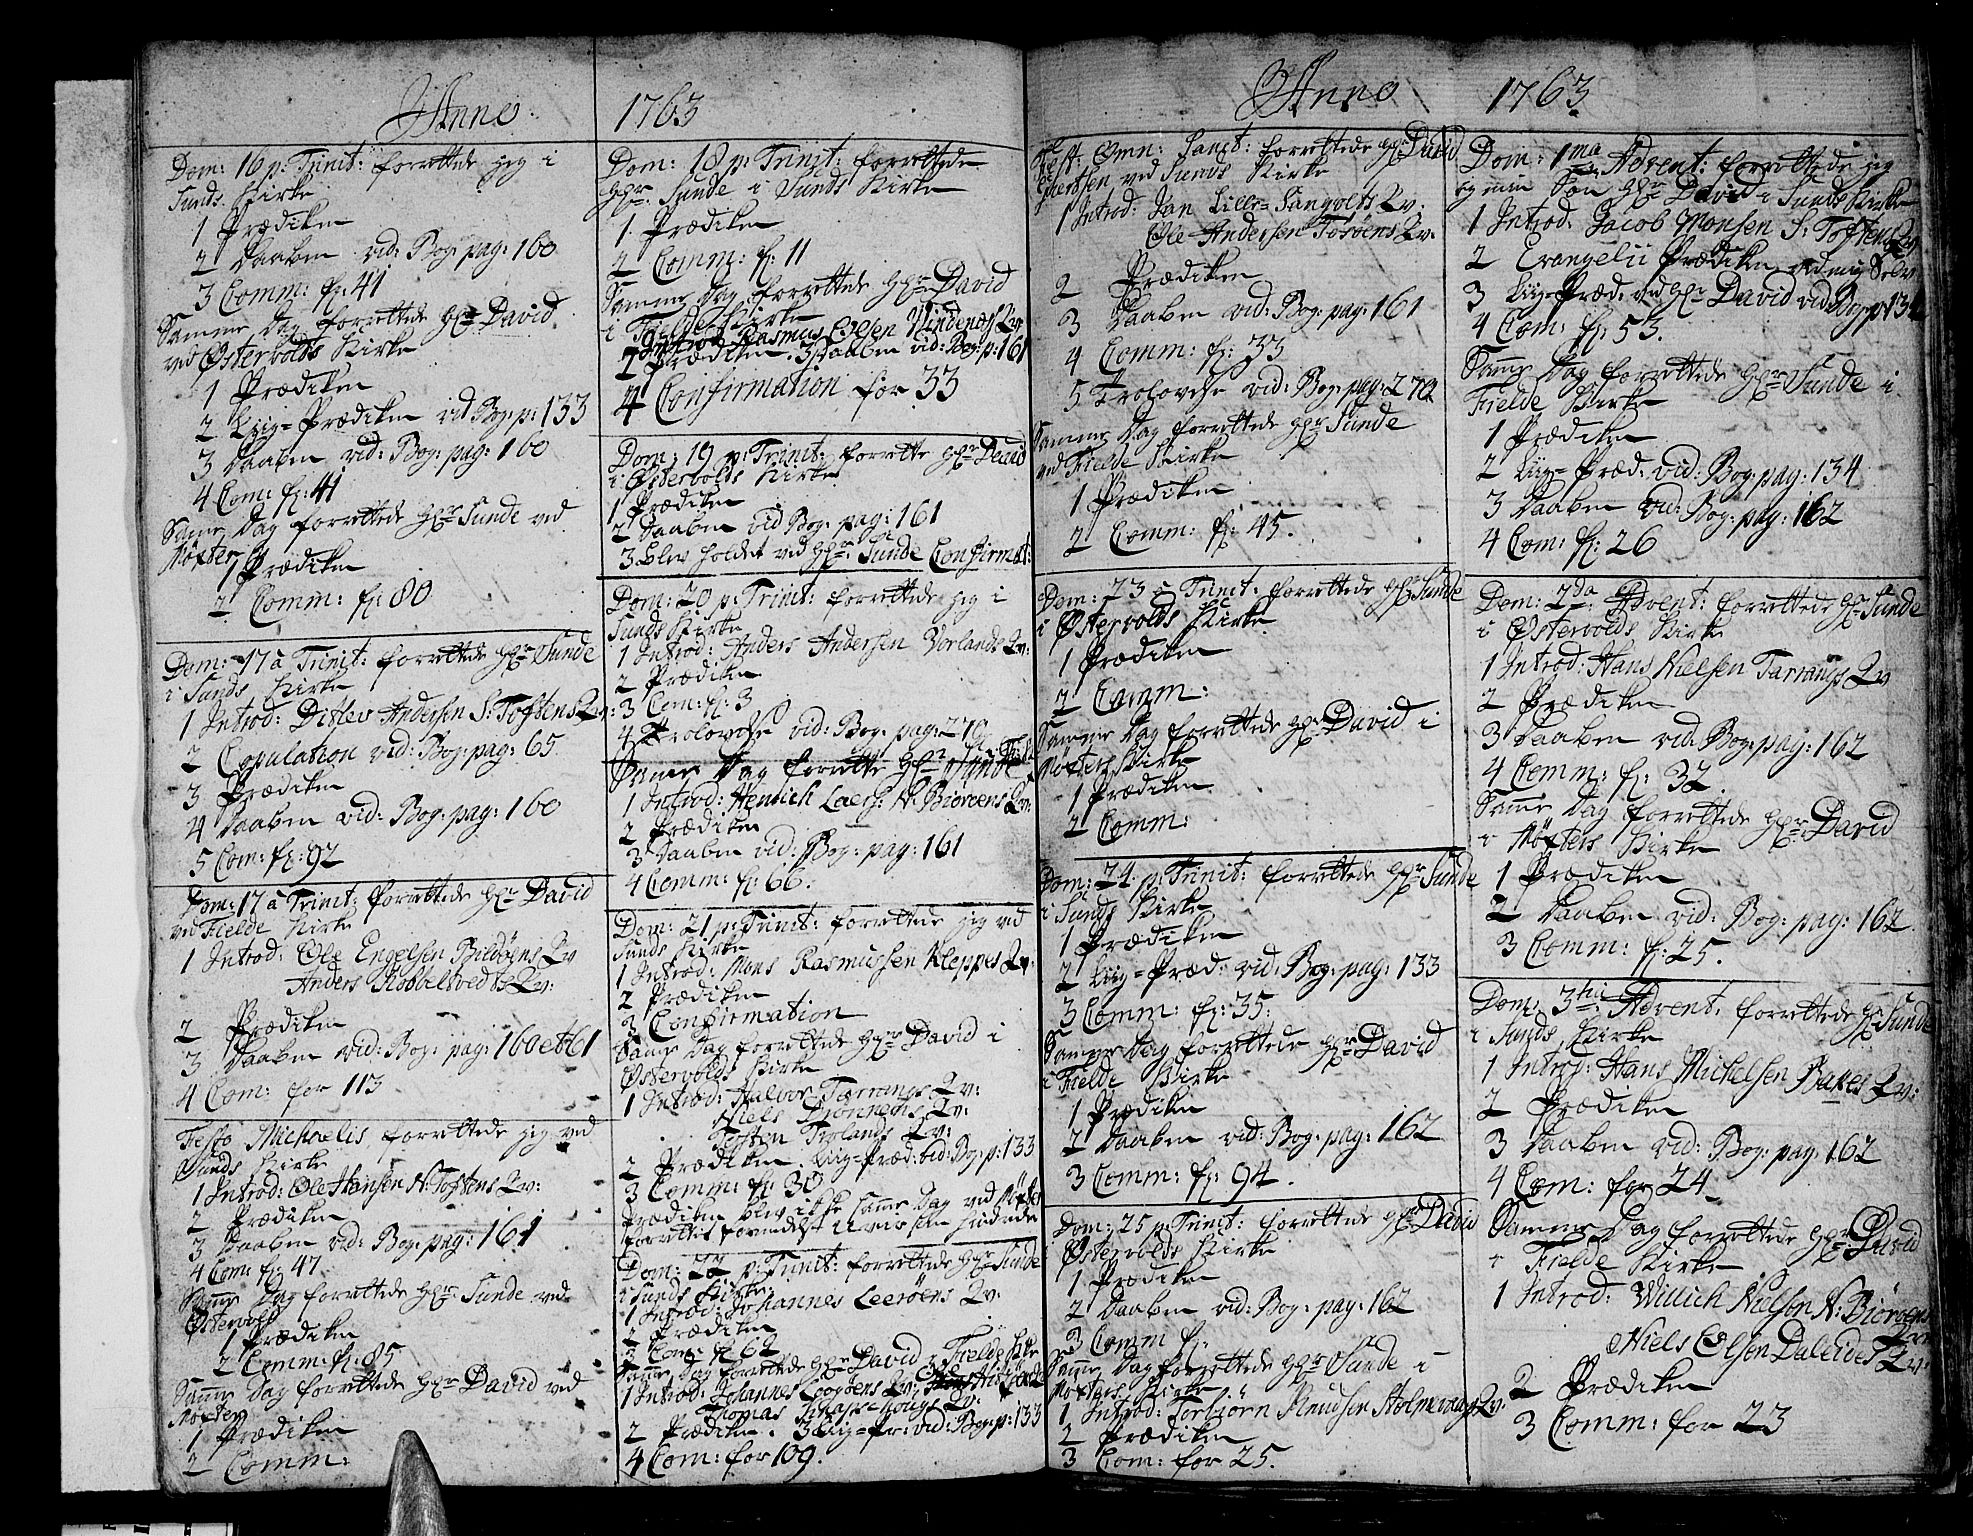 Anno 1763
Dom: 16 p: Trinit: forrettede jeg i
Sunds Kirke
1 Prædiken
2 Daaben vid: Bog: pag: 160
3 Comm: fr: 41
Samme Dag forrettede Hr David
ved Østervolds Kirke
1 Prædiken
2 Liig-Prædiken vid Bog: p: 133
3 Daaben vid: Bog: pag: 160
4 Com: fr: 41
Samme Dag forrettede Hr Sunde ved
Møxter
1 Prædiken
2 Comm: fr: 80
Dom: 17 a Trinit: forrettede Hr Sunde
i Sunds Kirke
1 Introd: Ditlev Andersen S: Toftens Qv:
2 Copulation vid: Bog: pag: 65
3 Prædiken
4 Daaben vid: Bog: pag: 160
5 Com: fr: 92
Dom: 17 a Trinit: forrettede Hr David
ved Fielde Kirke
1 Introd: Ole Engelsen Bildøens Qv
Anders Kobbeltvedts Qv:
2 Prædiken
3 Daaben vid: Bog: pag: 160 et 61
4 Com: for 113
Festo Michaelis forrettede jeg ved
Sunds Kirke
1 Introd: Ole Hansen N: Toftens Qv:
2 Prædiken
3 Daaben vid: Bog: pag: 161
4 Com: fr: 47
Samme Dag forrettede Hr Sunde ved
Østervold
1 Prædiken
2 Comm: fr: 85
Samme Dag forrettede Hr David ved
Møxter
1 Prædiken
2 Comm:
Dom: 18 p: Trinit: forrettede
Hr Sunde i Sunds Kirke
1 Prædiken
2 Comm: fr: 11
Samme Dag forrettede Hr David
i Fielde Kirke
1 Introd: Rasmus Olsen Vindenæs Qv
2 Prædiken. 3 Daaben vid: Bog: p: 161
4 Confirmation for 33
Dom: 19 p: Trinit: forrette Hr David
i Østervolds Kirke
1 Prædiken
2 Daaben vid Bog: pag: 161
3 Blev holdet ved Hr Sunde Confirmat:
Dom: 20 p: Trinit: forrettede jeg i
Sunds Kirke
1 Introd: Anders Andersen Vorlands Qv:
2 Prædiken
3 Com: fr: 3
4 Trolovelse vid: Bog: pag: 270
Samme Dag forrette Hr Sunde
1 Introd: Henrich Laers: N: Biøroens Qv:
2 Prædiken
3 Daaben vid: Bog: pag: 161
4 Comm: fr: 66.
Dom: 21 p: Trinit: forrettede jeg ved
Sunds Kirke
1 Introd: Mons Rasmussen Kleppes Qv:
2 Prædiken
3 Confirmation
Samme Dag forrettede Hr David i
Østervolds Kirke
1 Introd: Halvor Tarrangs Qv:
Niels Qv:
Tosten Trolands Qv:
2 Prædiken. Liig-Præd: vid: Bog: p: 133
3 Comm: fr: 30
Prædiken blev ikke samme Dag ved Møxter
forrettet formedelst Uveir som hindrede
Dom: 22 p: Trinit: forrettede Hr Sunde
i Sunds Kirke
1 Introd: Johannes Leerøens Qv:
2 Prædiken
3 Com: fr: 62
Samme Dag forrettede Hr David i Fielde Kirke
1 Introd: Johannes Qv:
Thomas Qv:
2 Prædiken. 3 Liig-Pr: vid: Bog: p: 133
4 Com: for 109.
Anno 1763
Fest: Omn: Sanct: forrettede Hr David
Geertsen ved Sunds Kirke
1 Introd: Jan Lille-Sangolts Qv:
Ole Andersen Tosøens Qv:
2 Prædiken
3 Daaben vid: Bog: pag: 161
4 Comm: fr: 33
5 Trolovelse vid: Bog: pag: 270
Samme Dag forrettede Hr Sunde
ved Fielde Kirke
1 Prædiken
2 Comm: fr: 45.
Dom: 23 a Trinit: forrettede Hr Sunde
i Østervolds Kirke
1 Prædiken
2 Comm:
Samme Dag forrettede Hr David i
Møxters Kirke
1 Prædiken
2 Comm:
Dom: 24. p: Trinit: forrettede Hr Sunde
i Sunds Kirke
1 Prædiken
2 Liig-Præd: vid: Bog: pag: 133
3 Comm: fr: 35.
Samme Dag forrettede Hr David
i Fielde Kirke
1 Prædiken
2 Daaben vid: Bog: pag: 162
3 Comm: fr: 94.
Dom: 25 p: Trinit: forrettede Hr David
i Østervolds Kirke
1 Prædiken
2 Daaben vid: Bog: pag: 162
3 Comm fr:
Samme Dag forrettede Hr Sunde i
Møxters Kirke
1 Introd: Torbjørn Knudsen Stolmevaag Qv:
2 Prædiken
3 Com: for 25.
Dom: 1ma Advent: forrettede jeg
og min Søn Hr David i Sunds Kirke
1 Introd: Jacob Monsen S: Toftens Qv
2 Evangelii Prædiken ved mig Selv
3 Liig-Præd: ved Hr David vid Bog: p: 134
4 Com: fr: 53.
Samme Dag forrettede Hr Sunde i
Fielde Kirke
1 Prædiken
2 Liig-Præd: vid: Bog: pag: 134
3 Daaben vid: Bog: pag: 162
4 Com: fr: 26
Dom: 2da Advent: forrettede Hr Sunde
i Østervolds Kirke
1 Introd: Hans Nielsen Tarrangs Qv
2 Prædiken
3 Daaben vid: Bog: pag: 162
4 Comm: fr: 32.
Samme Dag forrettede Hr David
i Møxters Kirke
1 Prædiken
2 Daaben vid: Bog: pag: 162
3 Comm: fr: 25.
Dom: 3tii Advent: forrettede Hr Sunde
i Sunds Kirke
1 Introd: Hans Michelsen Bakes Qv:
2 Prædiken
3 Daaben vid: Bog: pag: 162
4 Com: for 24
Samme Dag forrettede Hr David
i Fielde Kirke
1 Introd: Willich Nielsen N: Biøroens
Qv:
Niels Olsen Daleides Qv:
2 Prædiken
3 Comm: for 23